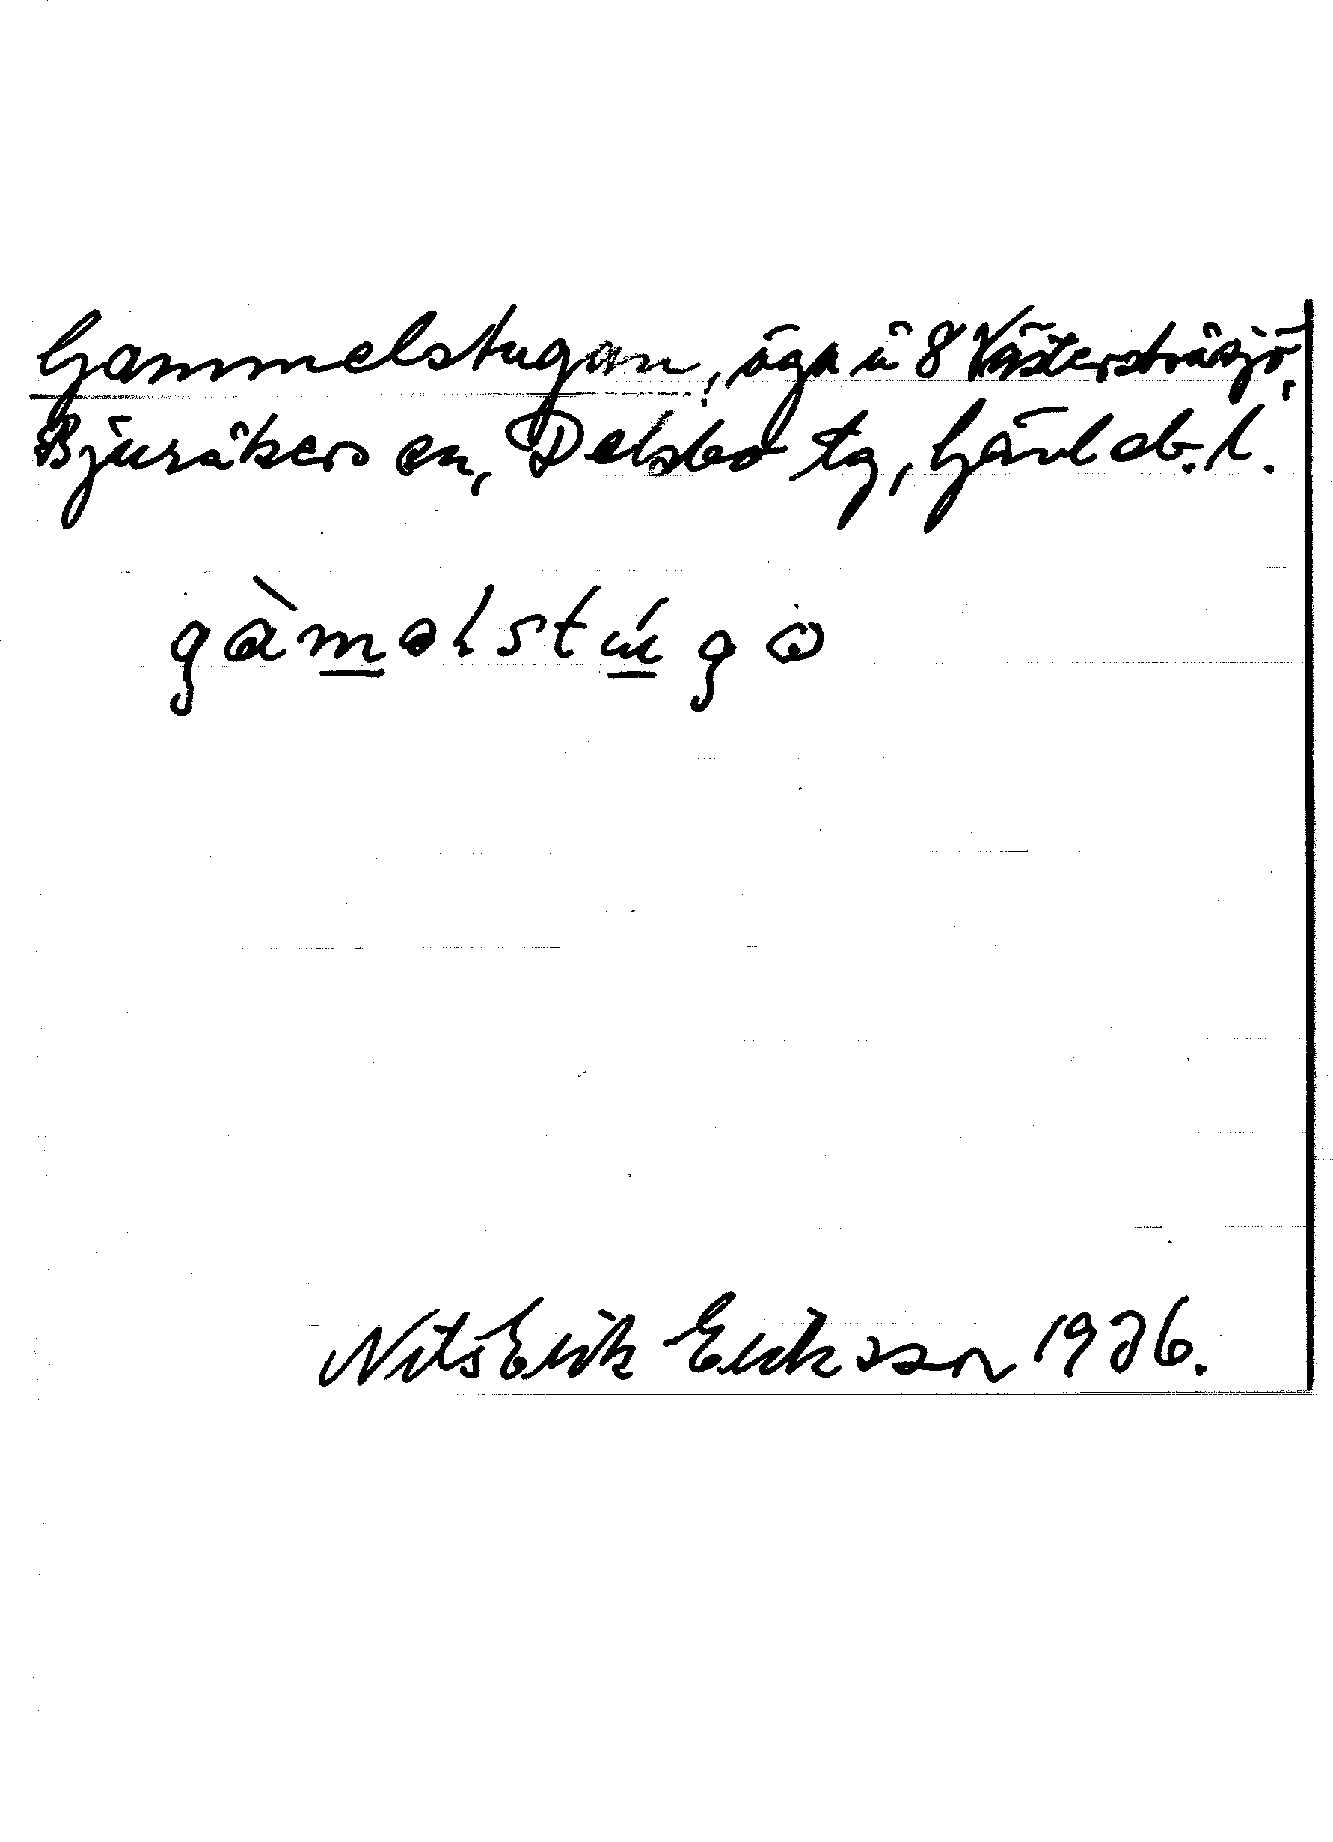 Gammelstugan, äga å 8 Västersträsjö,
Bjuråkers sn, Delsbo tg, Gävleb. l.
gàməlstúgɷ
Nils Erik Eriksson 1936.